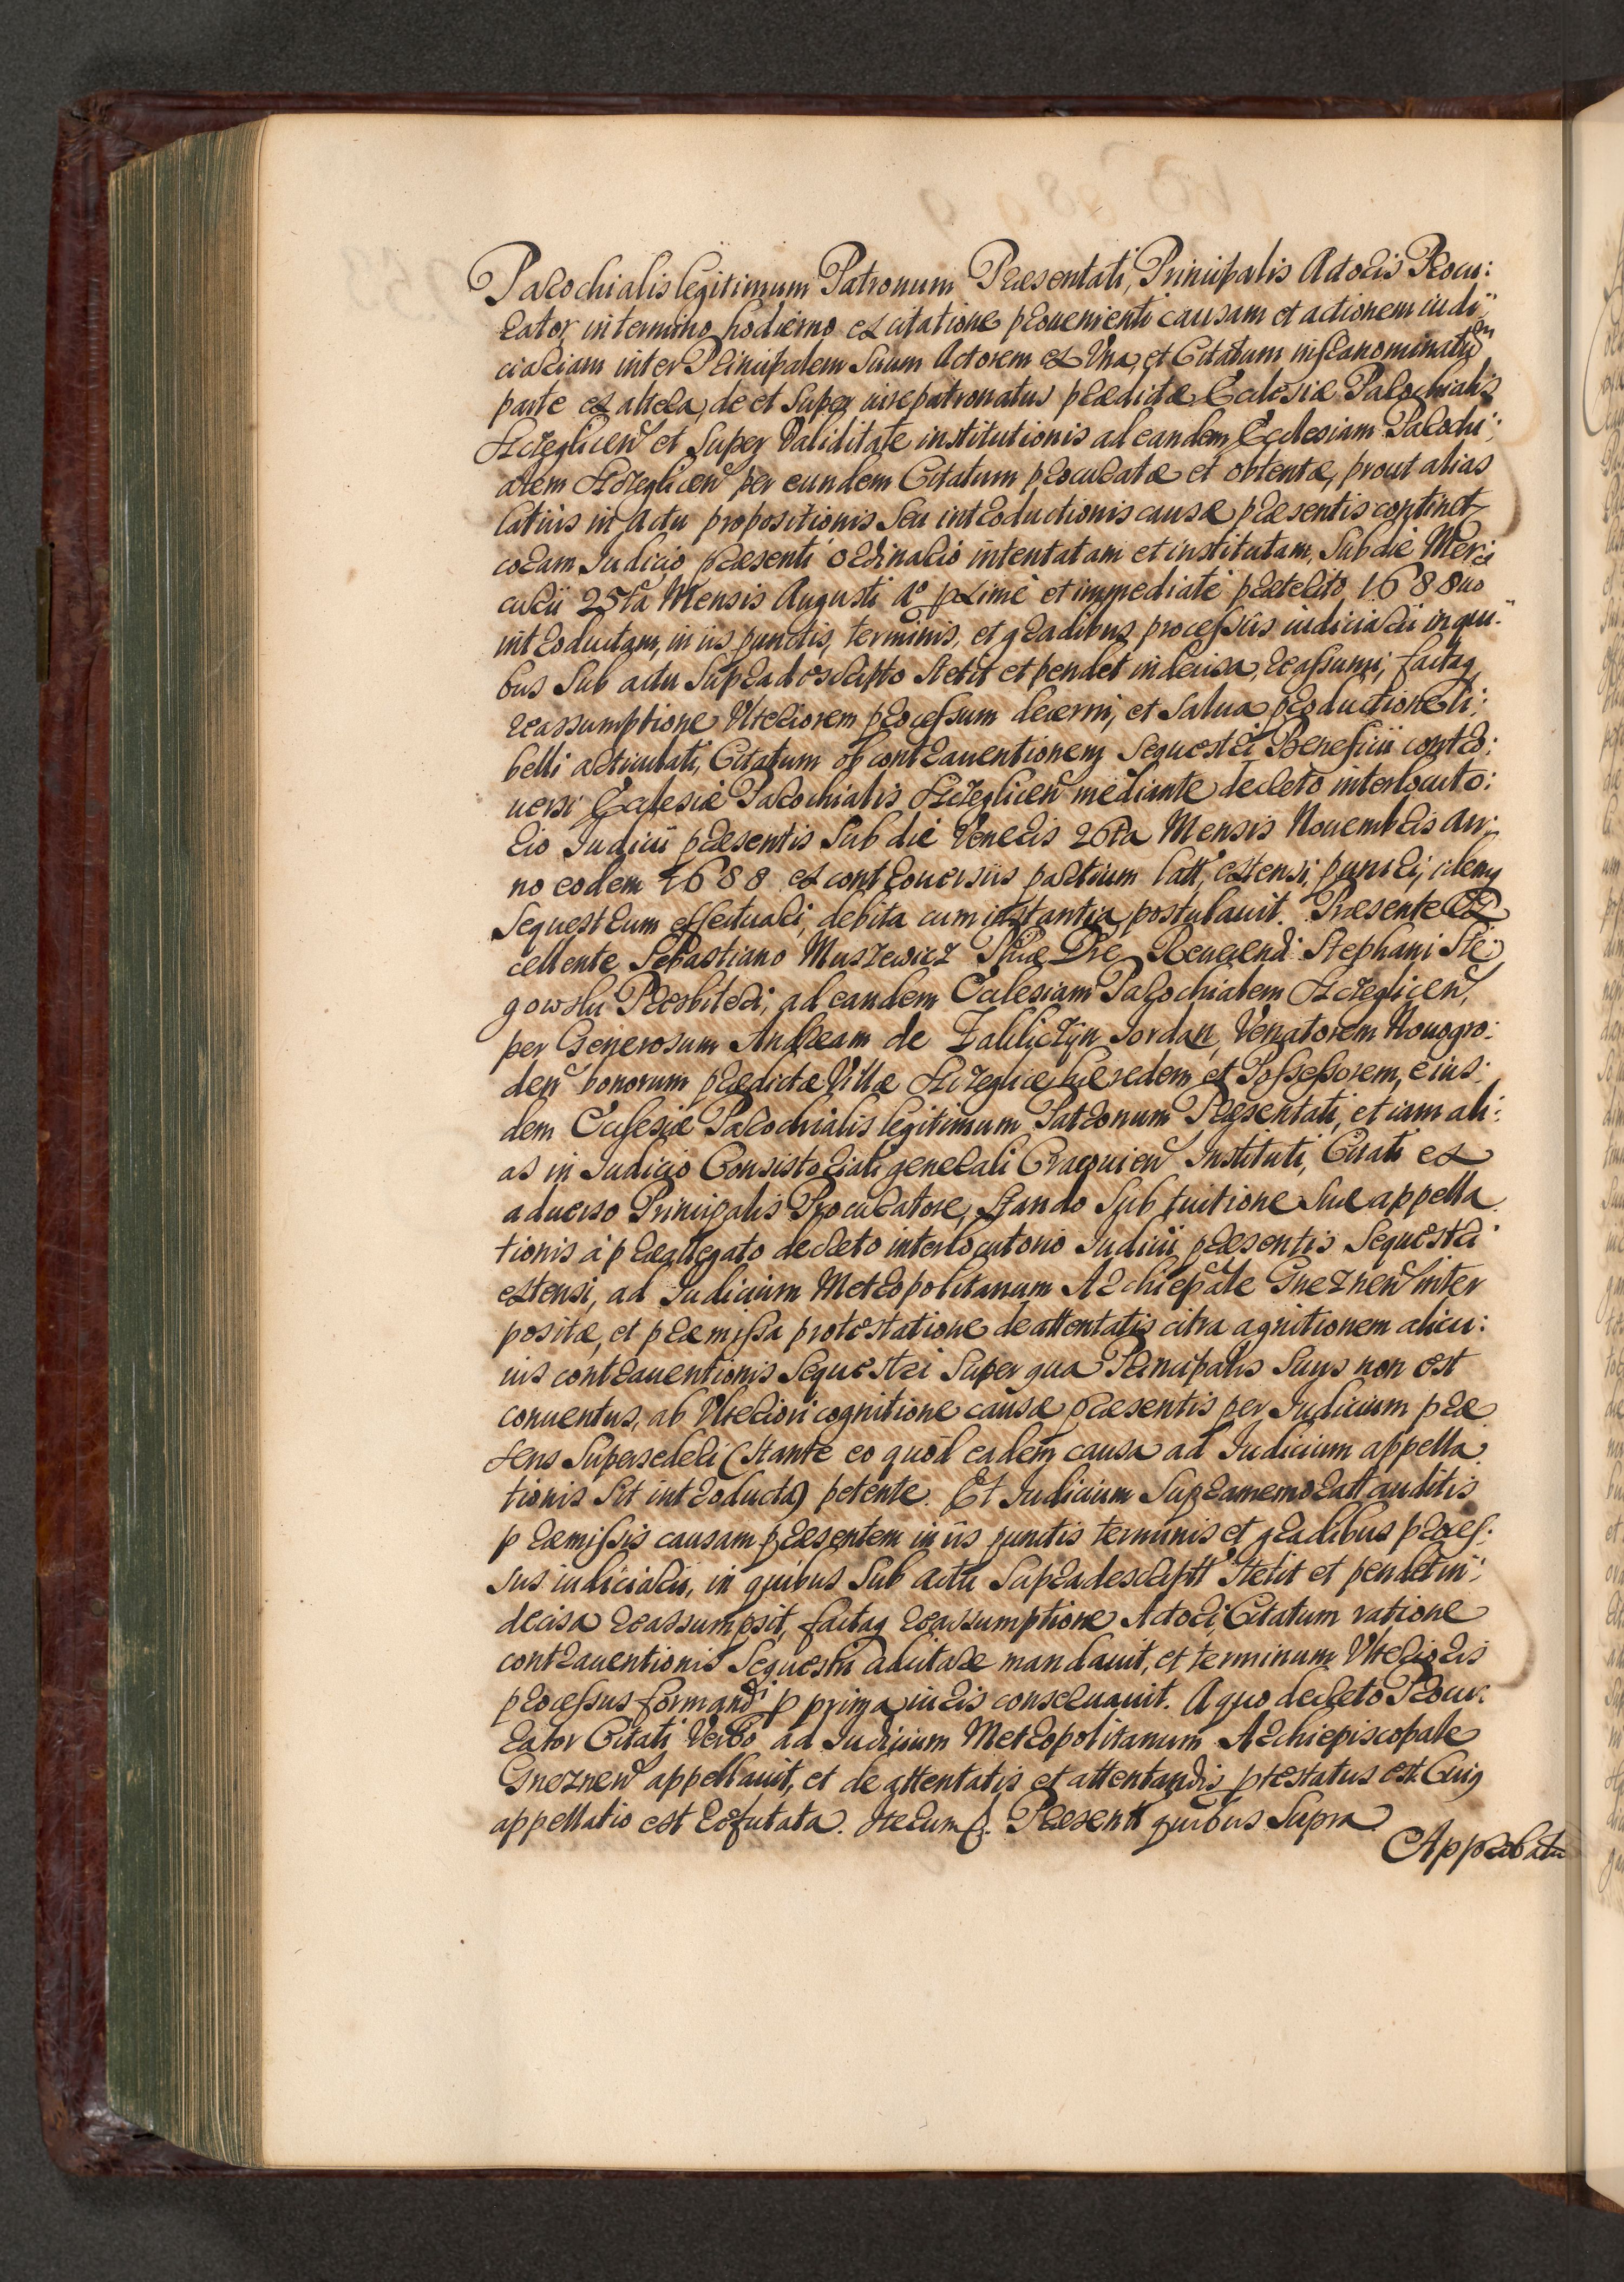 Parochialis legitimum Patronum Præsentati, Principalis Actoris Procu:
rator, in termino hodierno ex citatione provenienti causam et actionem iudi:
ciariam inter Principalem Suum Actorem ex Una, et Citatum infranominatum
parte ex altera, de et Super iurepatronatus prædictæ Ecclesiæ Parochialis
et Super Validitate institutionis ad eandem Ecclesiam Parochi:
alem per eundem Citatum procuratæ et obtentæ, prout alias
latius in Actu propositionis Seu introductionis causæ præsentis continet
coram Iudicio præsenti ordinario intentatam et institutam, Sub die Mer
curii 25ta Mensis Augusti Aº pxime et immediate præterito 1688uo
introductam, in iis punctis, terminis, et gradibus processus iudiciarii in qui:
bus Sub actu Supradescripto stetit et pendet indecisa, reassumi, factaq
reassumptione Ulteriorem processum decerni, et Salua productione li:
belli articulati, Citatum ob contrauentionem Sequestri Beneficii contro:
uersi Ecclesiæ Parochialis mediante decreto interlocuto:
rio Iudicii præsentis Sub die Veneris 26ta Mensis Nouembris an:
no eodem 1688 ex controuersiis partium latt, extensi, puniri, idemq
Sequestrum effectuari, debita cum instantia postulauit. Præsente Ex
cellente Sebastiano Muszewicz Reuerendi Stephani Ste:
gowski Præsbiteri, ad eandem Ecclesiam Parochialem
per Generosum Andream de Zakliczyn Jordan, Venatorem Nouogro:
den bonorum prædictæ Villæ hæredem et Possessorem, eius:
dem Ecclesiæ Parochialis legitimum Patronum Præsentati, et iam ali:
as in Iudicio Consistoriali generali Cracouien Instituti, Citati ex
aduerso Principalis Procuratore, stando Sub tuitione Suæ appella
tionis à præallegato decreto interlocutorio Iudicii præsentis Sequestri
extensi, ad Iudicium Metropolitanum Archiepale Gneznen inter
positæ, et præmissa protestatione de attentatis citra agnitionem alicu:
ius contrauentionis Sequestri Super qua Principalis Suus non est
conuentus, ab Ulteriori cognitione causæ præsentis per Iudicium præ
sens Supersederi (stante eo quod eadem causa ad Iudicium appella
tionis Sit introducta) petente. Et Iudicium Supramemoratt auditis
præmissis causam præsentem in iis punctis terminis et gradibus proces:
sus iudiciarii, in quibus Sub actu Supradescriptt stetit et pendet in:
decisa reassumpsit, factaq reassumptione Actori, Citatum ratione
contrauentionis Sequestri adcitare mandauit, et terminum Ulterioris
processus formandi p prima iuris conseruauit. A quo decreto Procu:
rator Citati Verbo ad Iudicium Metropolitanum Archiepiscopale
Gneznen appellauit, et de attentatis et attentandis ptestatus est. Cuiq
appellatio est refutata. Presentt quibus Supra
Approbatu